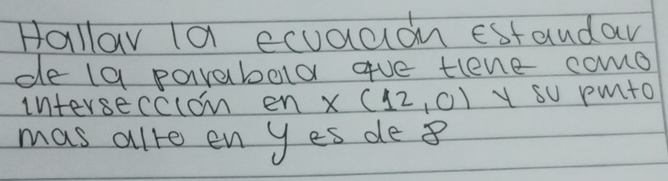 Hallar la ecuación estandar
de la parabola que tiene como
intersección en x (12,0) y su punto
mas alto en y es de 8